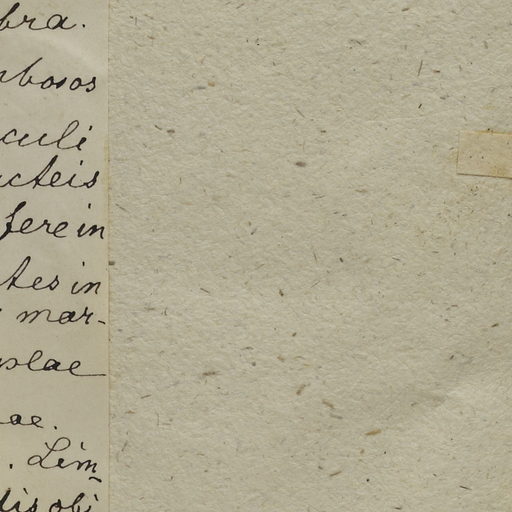 bra.
mbosos
culi
acteis
fere in
tes in
mar-
ulae
ae.
. Lim-
lis obi